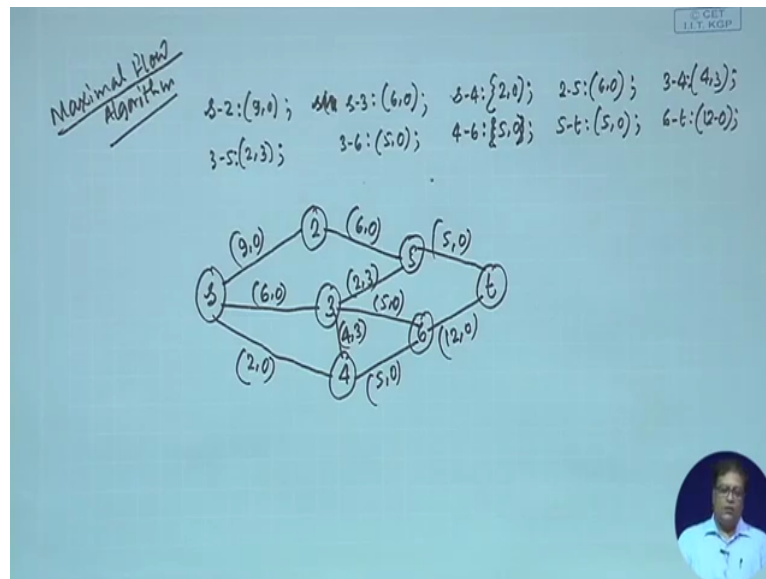 © CET
I.I.T. KGP
Maximal Flow
Algorithm
s-2:(9,0); s-3:(6,0); s-4:{2,0); 2-5:(6,0); 3-4:(4,3);
3-5:(2,3); 3-6:(5,0); 4-6:{5,0}; 5-t:(5,0); 6-t:(12-0);
(9,0) 2 (6,0) 5 (5,0)
s (6,0) 3 (2,3) (5,0) t
(4,3) 6 (12,0)
(2,0) 4 (5,0)